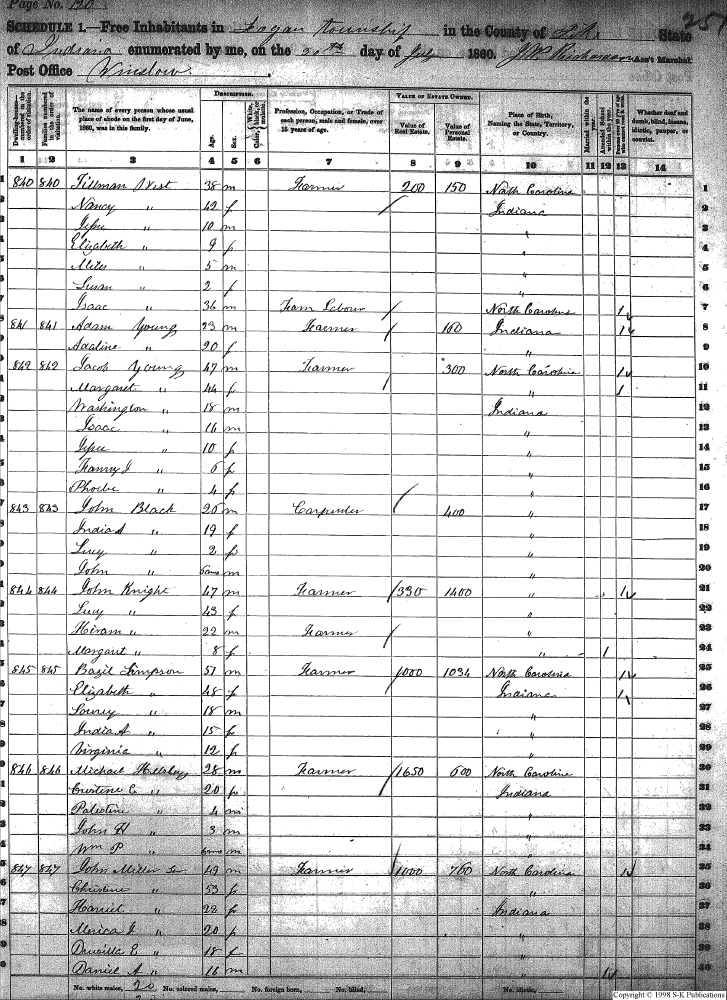 Page No. 120
257
SCHEDULE 1.—Free Inhabitants in Logan Township in the County of Pike State
of Indiana enumerated by me, on the 20th day of July 1860. J W Richardson Ass't Marshal.
Post Office Winslow.
DESCRIPTION. VALUE OF ESTATE OWNED.
Dwelling-houses— numbered in the order of visitation. Families numbered in the order of visitation. The name of every person whose usual place of abode on the first day of June, 1860, was in this family. Age. Sex. Color, White, black, or mulatto. Profession, Occupation, or Trade of each person, male and female, over 15 years of age. Value of Real Estate. Value of Personal Estate. Place of Birth, Naming the State, Territory, or Country. Married within the year. Attended School within the year. Whether deaf and dumb, blind, insane, idiotic, pauper, or convict.
1 2 3 4 5 6 7 8 9 10 11 12 13 14
1 840 840 Tillman West 38 m Farmer 200 150 North Carolina 1
2 Nancy " 42 f / Indiana 2
3 Jesse " 10 m " 3
4 Elizabeth " 9 f " 4
5 Miles " 5 m " 5
6 Susan " 2 f " 6
7 Isaac " 36 m Farm Labour / North Carolina 1 7
8 841 841 Adam Young 23 m Farmer / 160 Indiana 1 8
9 Adaline " 20 f " 9
10 842 842 Jacob Young 47 m Farmer 300 North Carolina 1 10
11 Margaret " 44 f / " 1 11
12 Washington " 18 m Indiana 12
13 Isaac " 16 m " 13
14 " 10 f " 14
15 Fanny J " 6 f " 15
16 Phoebe " 4 f " 16
17 843 843 John Black 20 m Carpenter / 400 " 17
18 India A " 19 f " 18
19 Lucy " 2 f " 19
20 John " 6mos m " 20
21 844 844 John Knight 47 m Farmer / 350 1400 " 1 21
22 Lucy " 43 f " 22
23 Hiram " 22 m Farmer / " 23
24 Margaret " 8 f " 1 24
25 845 845 Bazil Simpson 51 m Farmer 1000 1034 North Carolina 1 25
26 Elizabeth " 48 f Indiana 1 26
27 Lowrey " 18 m " 27
28 India A " 15 f " 28
29 Virginia " 12 f " 29
30 846 846 Michael 28 m Farmer 1650 600 North Carolina 30
31 " 20 f / Indiana 31
32 Palestine " 4 m " 32
33 John H " 3 m " 33
34 Wm P " 6mos m " 34
35 847 847 John Miller Sen 49 m Farmer 1000 760 North Carolina 1 35
36 Christine " 53 f " 36
37 Harriet " 22 f Indiana 37
38 J " 20 f " 38
39 Druscilla E " 18 f " 39
40 Daniel A " 16 m " 1 40
No. white males, 20 No. colored males, No. foreign born, No. blind, No. idiotic,
Copyright © 1998 S-K Publications